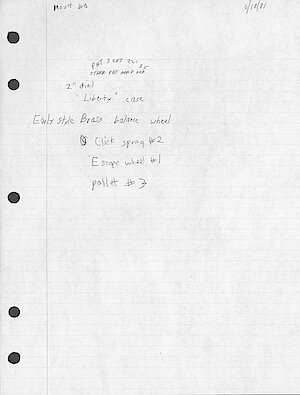 9/18/81
PAT SEPT 22, 85
OTHER PAT APPLD FOR
2" dial
"Liberty" case
Early style Brass balance wheel
Click spring #2
Escape wheel #1
pallet # 3